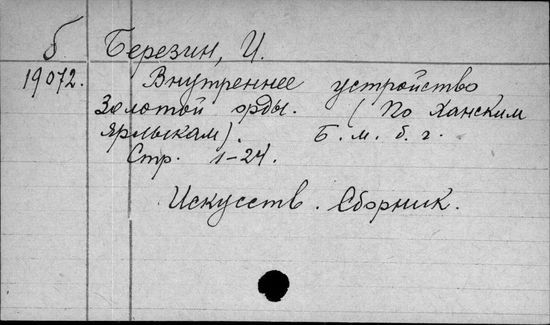 б
Березин, И.
19072.
Внутреннее устройство
Золотой орды. (По Ханским
ярлыкам). Б. м. б. г.
Стр. 1-24.
Искусств. Сборник.